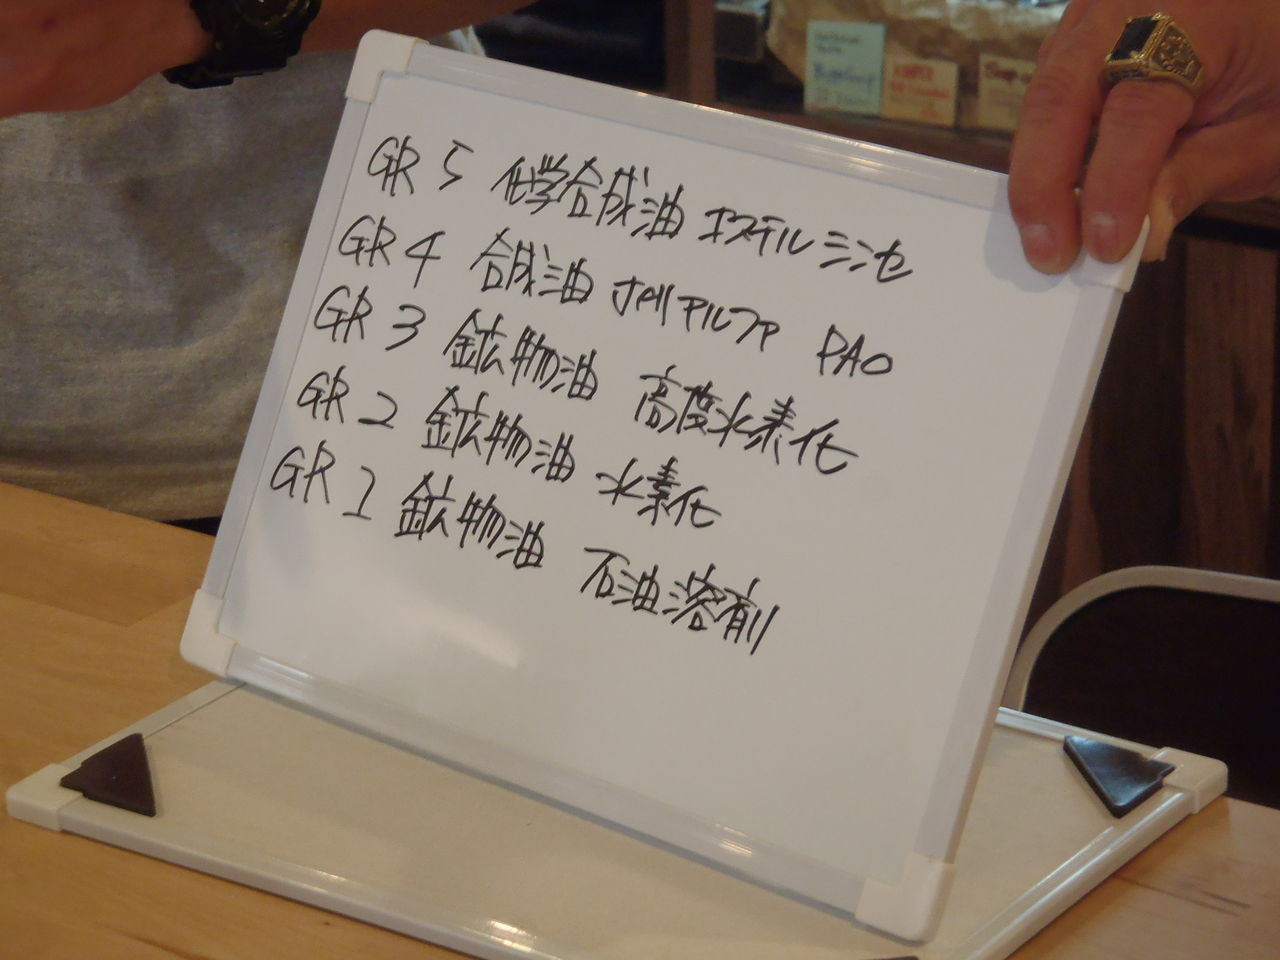 GR 5 化学合成油 エステル シンセ
GR 4 合成油 アルファ PAO
GR 3 鉱物油 高度水素化
GR 2 鉱物油 水素化
GR 1 鉱物油 石油溶剤